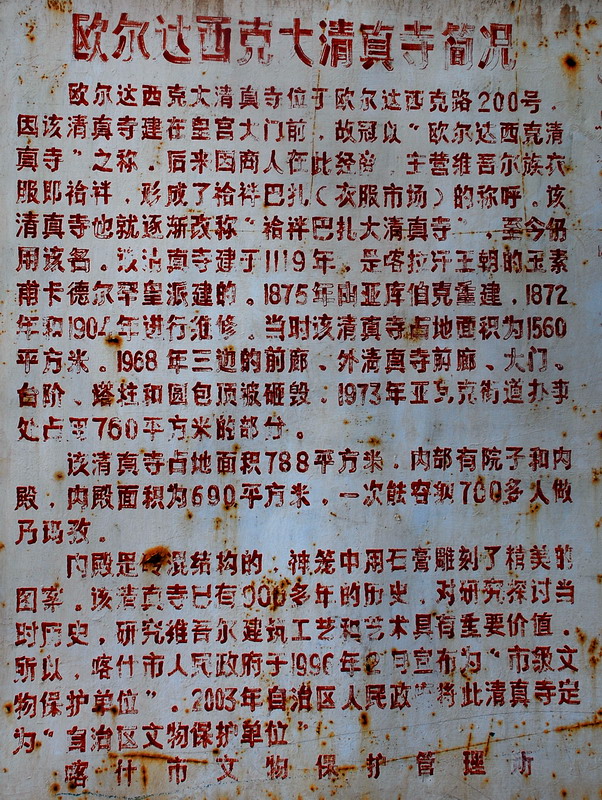 欧尔达西克大清真寺简况
欧尔达西克大清真寺位于欧尔达西克路200号。
因该清真寺建在皇宫大门前，故冠以“欧尔达西克清
真寺”之称。后来因商人在此经商，主营维吾尔族衣
服即袷袢，形成了袷袢巴扎（衣服市场）的称呼。该
清真寺也就逐渐改称“袷袢巴扎大清真寺”，至今仍
用该名。该清真寺建于1119年。是喀拉汗王朝的玉素
甫卡德尔罕皇派建的。1875年由亚库伯克重建，1872
年和1904年进行维修。当时该清真寺占地面积为1560
平方米。1968年三边的前廊、外清真寺前廊、大门、
台阶、塔柱和圆包顶被砸毁。1973年亚瓦克街道办事
处占用760平方米的部分。
该清真寺占地面积788平方米。内部有院子和内
殿，内殿面积为690平方米，一次能容纳700多人做
乃玛孜。
内殿是砖混结构的，神龛中用石膏雕刻了精美的
图案。该清真寺已有900多年的历史，对研究探讨当
时历史，研究维吾尔建筑工艺和艺术具有重要价值。
所以，喀什市人民政府于1996年 宣布为“市级文
物保护单位”。2003年自治区人民政 将此清真寺定
为“自治区文物保护单位”
喀什市文物保护管理所